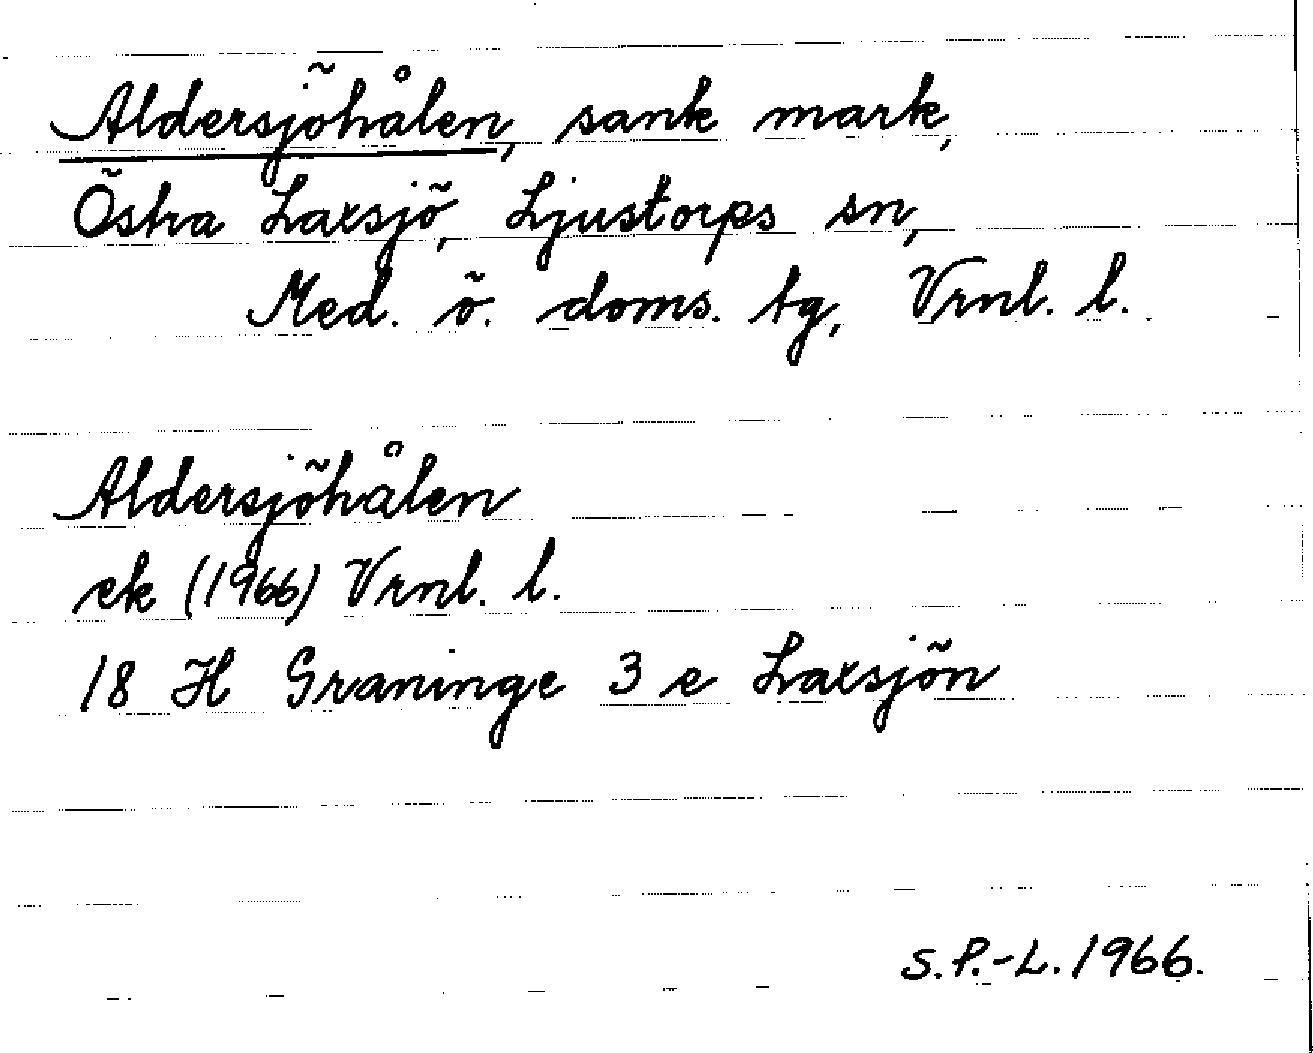 Aldersjöhålen, sank mark,
Östra Laxsjö, Ljustorps sn,
Med. ö. doms. tg, Vrnl. l.
Aldersjöhålen
ek (1966) Vrnl. l.
18 H Graninge 3 e Laxsjön
S.P.-L. 1966.